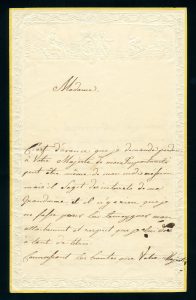 Madame.
C'est d'avance que je demande pardon
à Votre Majesté de mon importunité
peut être même de mon indiscrétion
mais il s'agit des interets de ma
Grandmama et il n'y a rien que je
ne fasse pour lui temoigner mon
attachement et respect que je lui dois
à tant de titres.
Connaissant les bontés que Votre Majesté